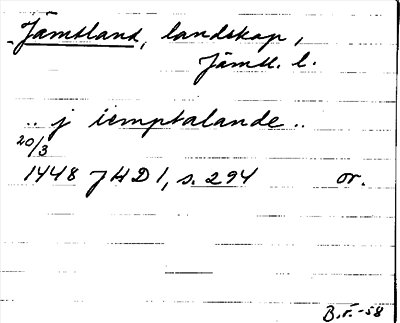 Jämtland, landskap,
Jämtl. l.
.. j iemptalande ..
20/3
1448 JHD 1, s. 294 or.
B.F. -58